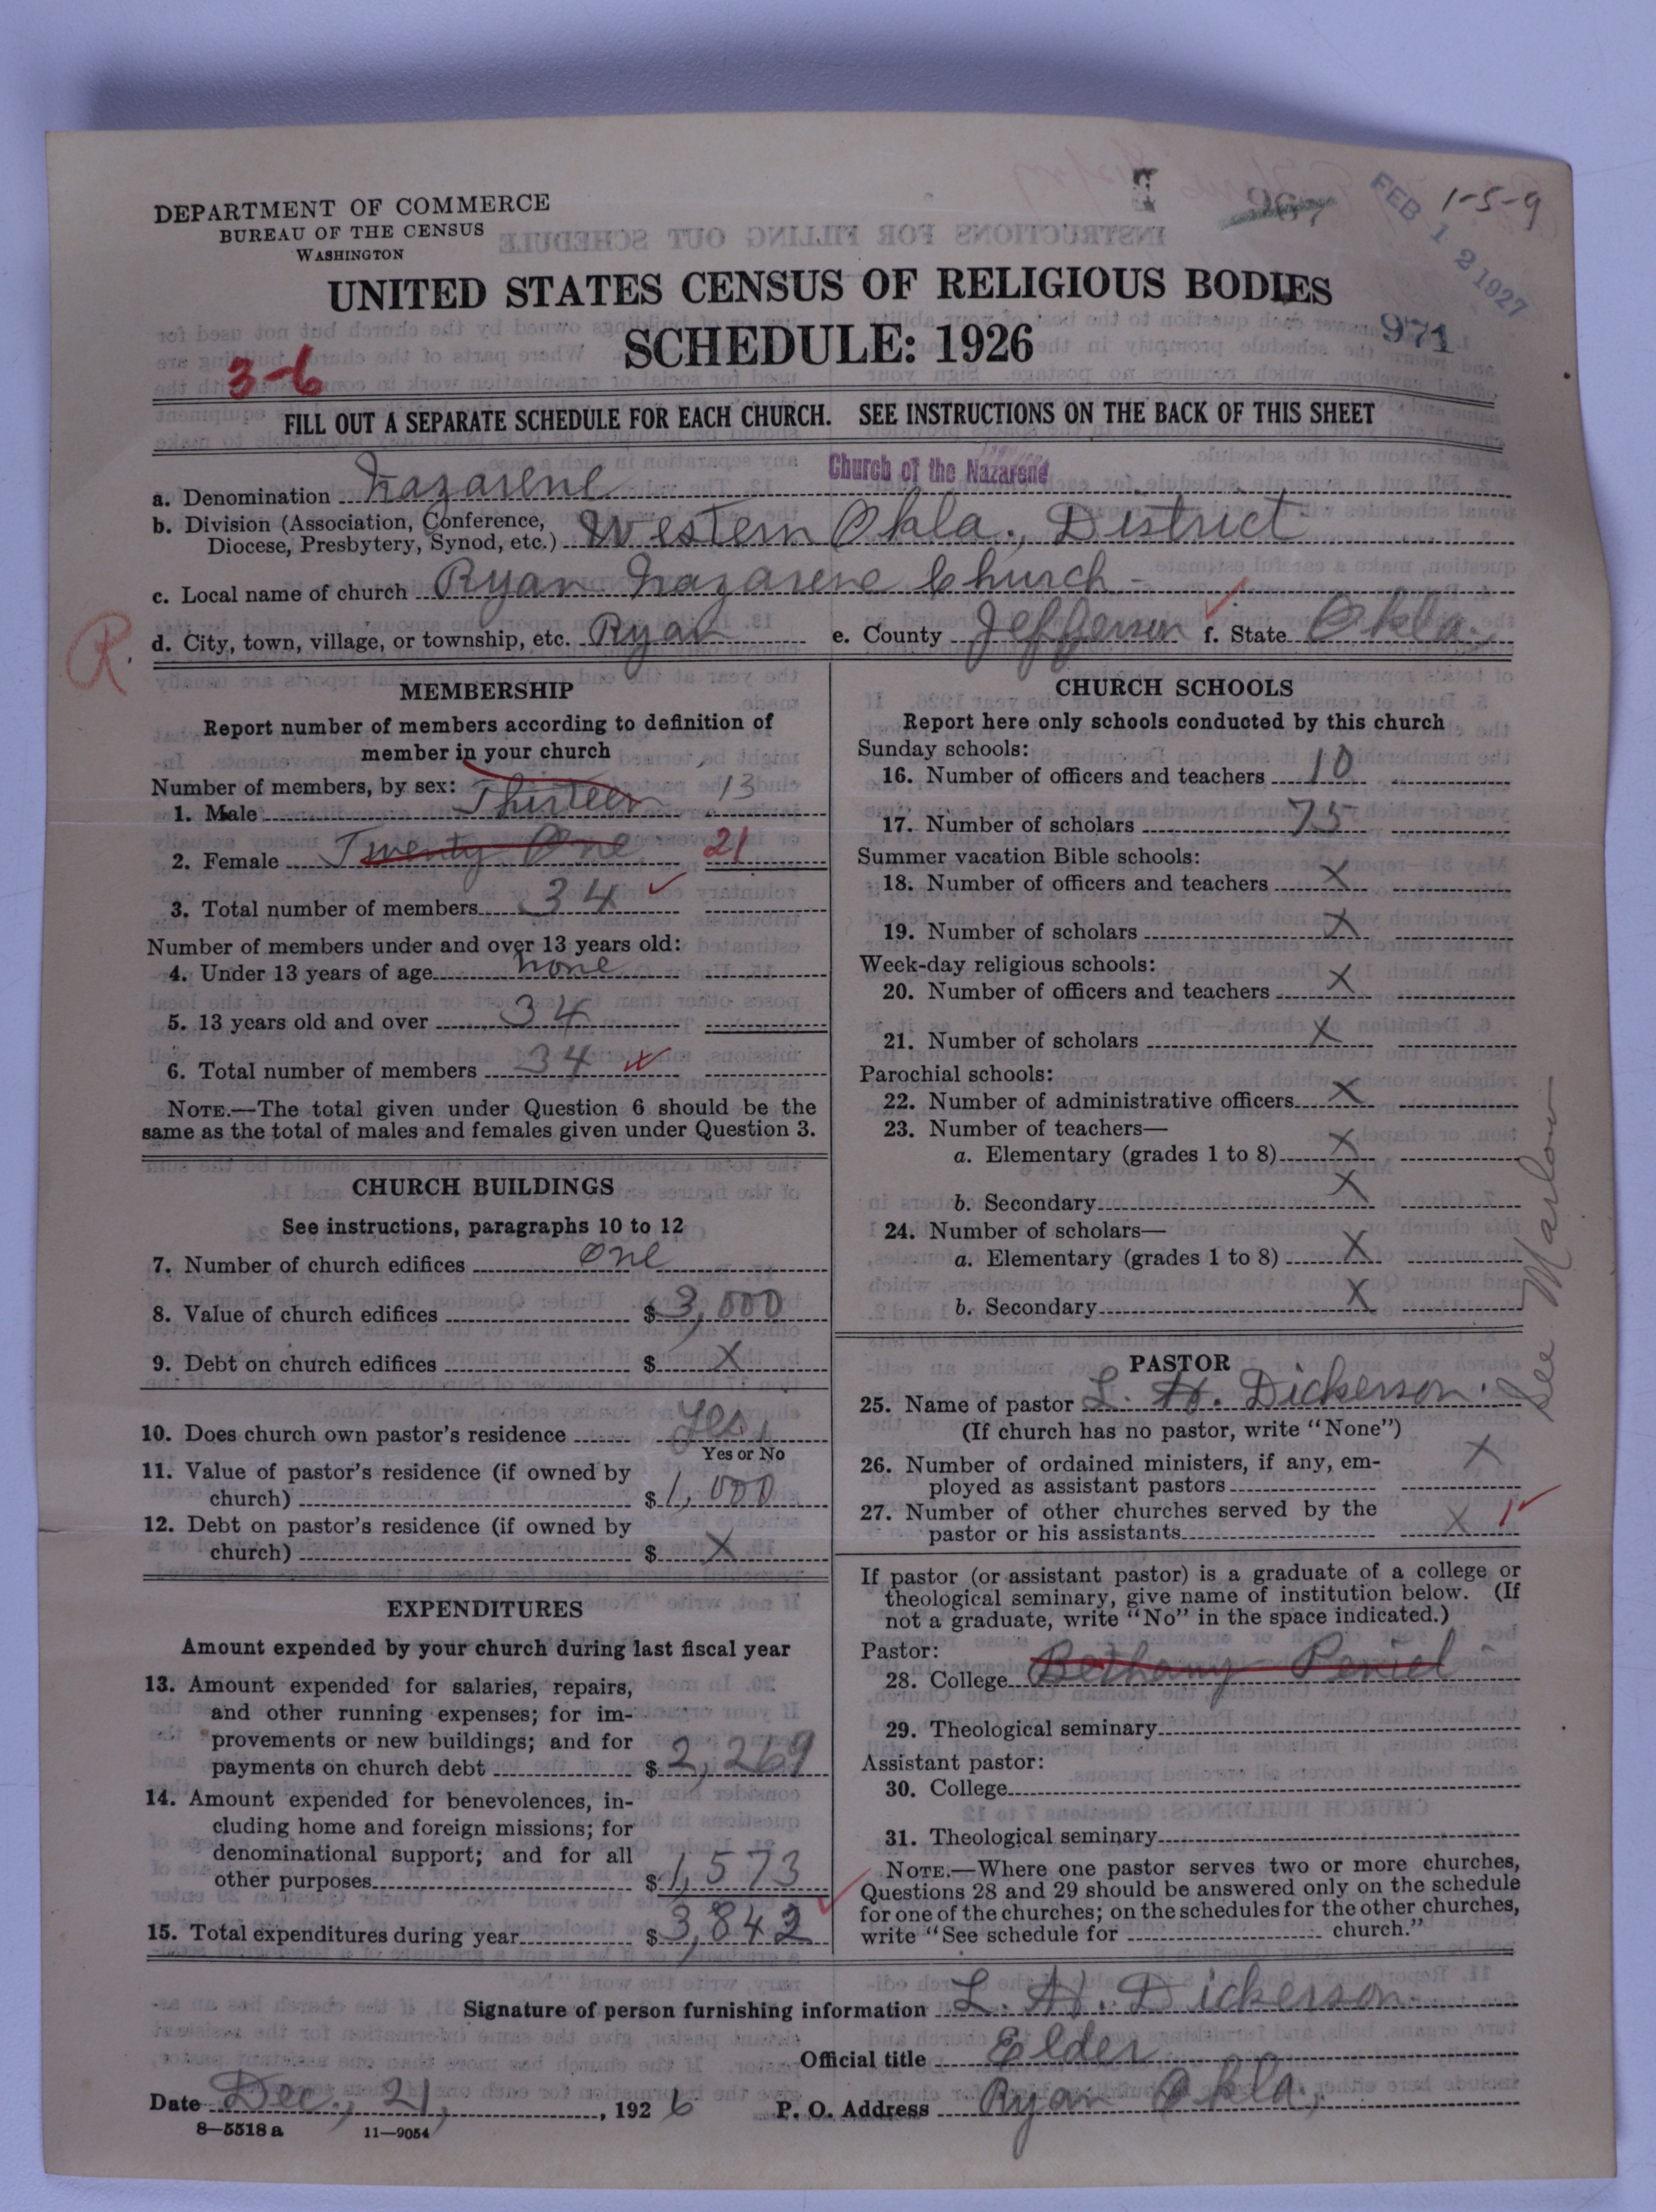 DEPARTMENT OF COMMERCE
BUREAU OF THE CENSUS
WASHINGTON
1-5-9
FEB 12 1927
971
UNITED STATES CENSUS OF RELIGIOUS BODIES
SCHEDULE: 1926
3-6
FILL OUT A SEPARATE SCHEDULE FOR EACH CHURCH. SEE INSTRUCTIONS ON THE BACK OF THIS SHEET
Church of the Nazarene
a. Denomination Nazarene
b. Division (Association, Conference, Diocese, Presbytery, Synod, etc.) Western Okla., District
c. Local name of church Ryan Nazarene Church -
R.
d. City, town, village, or township, etc. Ryan e. County Jefferson f. State Okla.
MEMBERSHIP
Report number of members according to definition of
member in your church
Number of members, by sex:
1. Male Thirteen 13
2. Female Twenty One 21
3. Total number of members 34
Number of members under and over 13 years old:
4. Under 13 years of age none
5. 13 years old and over 34
6. Total number of members 34
NOTE.—The total given under Question 6 should be the
same as the total of males and females given under Question 3.
CHURCH BUILDINGS
See instructions, paragraphs 10 to 12
7. Number of church edifices one
8. Value of church edifices $ 3,000
9. Debt on church edifices $ X
10. Does church own pastor's residence Yes,
Yes or No
11. Value of pastor's residence (if owned by
church) $ 1,000
12. Debt on pastor's residence (if owned by
church) $ X
EXPENDITURES
Amount expended by your church during last fiscal year
13. Amount expended for salaries, repairs,
and other running expenses; for im-
provements or new buildings; and for
payments on church debt $ 2,269
14. Amount expended for benevolences, in-
cluding home and foreign missions; for
denominational support; and for all
other purposes $ 1,573
15. Total expenditures during year $ 3,842
CHURCH SCHOOLS
Report here only schools conducted by this church
Sunday schools:
16. Number of officers and teachers 10
17. Number of scholars 75
Summer vacation Bible schools:
18. Number of officers and teachers X
19. Number of scholars X
Week-day religious schools:
20. Number of officers and teachers X
21. Number of scholars X
Parochial schools:
22. Number of administrative officers X
23. Number of teachers—
a. Elementary (grades 1 to 8) X
b. Secondary X
24. Number of scholars—
a. Elementary (grades 1 to 8) X
b. Secondary X
See Marlow
PASTOR
25. Name of pastor L. H. Dickerson.
(If church has no pastor, write "None")
26. Number of ordained ministers, if any, em-
ployed as assistant pastors X
27. Number of other churches served by the
pastor or his assistants X 1
If pastor (or assistant pastor) is a graduate of a college or
theological seminary, give name of institution below. (If
not a graduate, write "No" in the space indicated.)
Pastor:
28. College Bethany Peniel
29. Theological seminary
Assistant pastor:
30. College
31. Theological seminary
NOTE.—Where one pastor serves two or more churches,
Questions 28 and 29 should be answered only on the schedule
for one of the churches; on the schedules for the other churches,
write "See schedule for church."
Signature of person furnishing information L. H. Dickerson.
Official title Elder
Date Dec., 21, 1926 P. O. Address Ryan Okla,
8—5518 a 11—9054